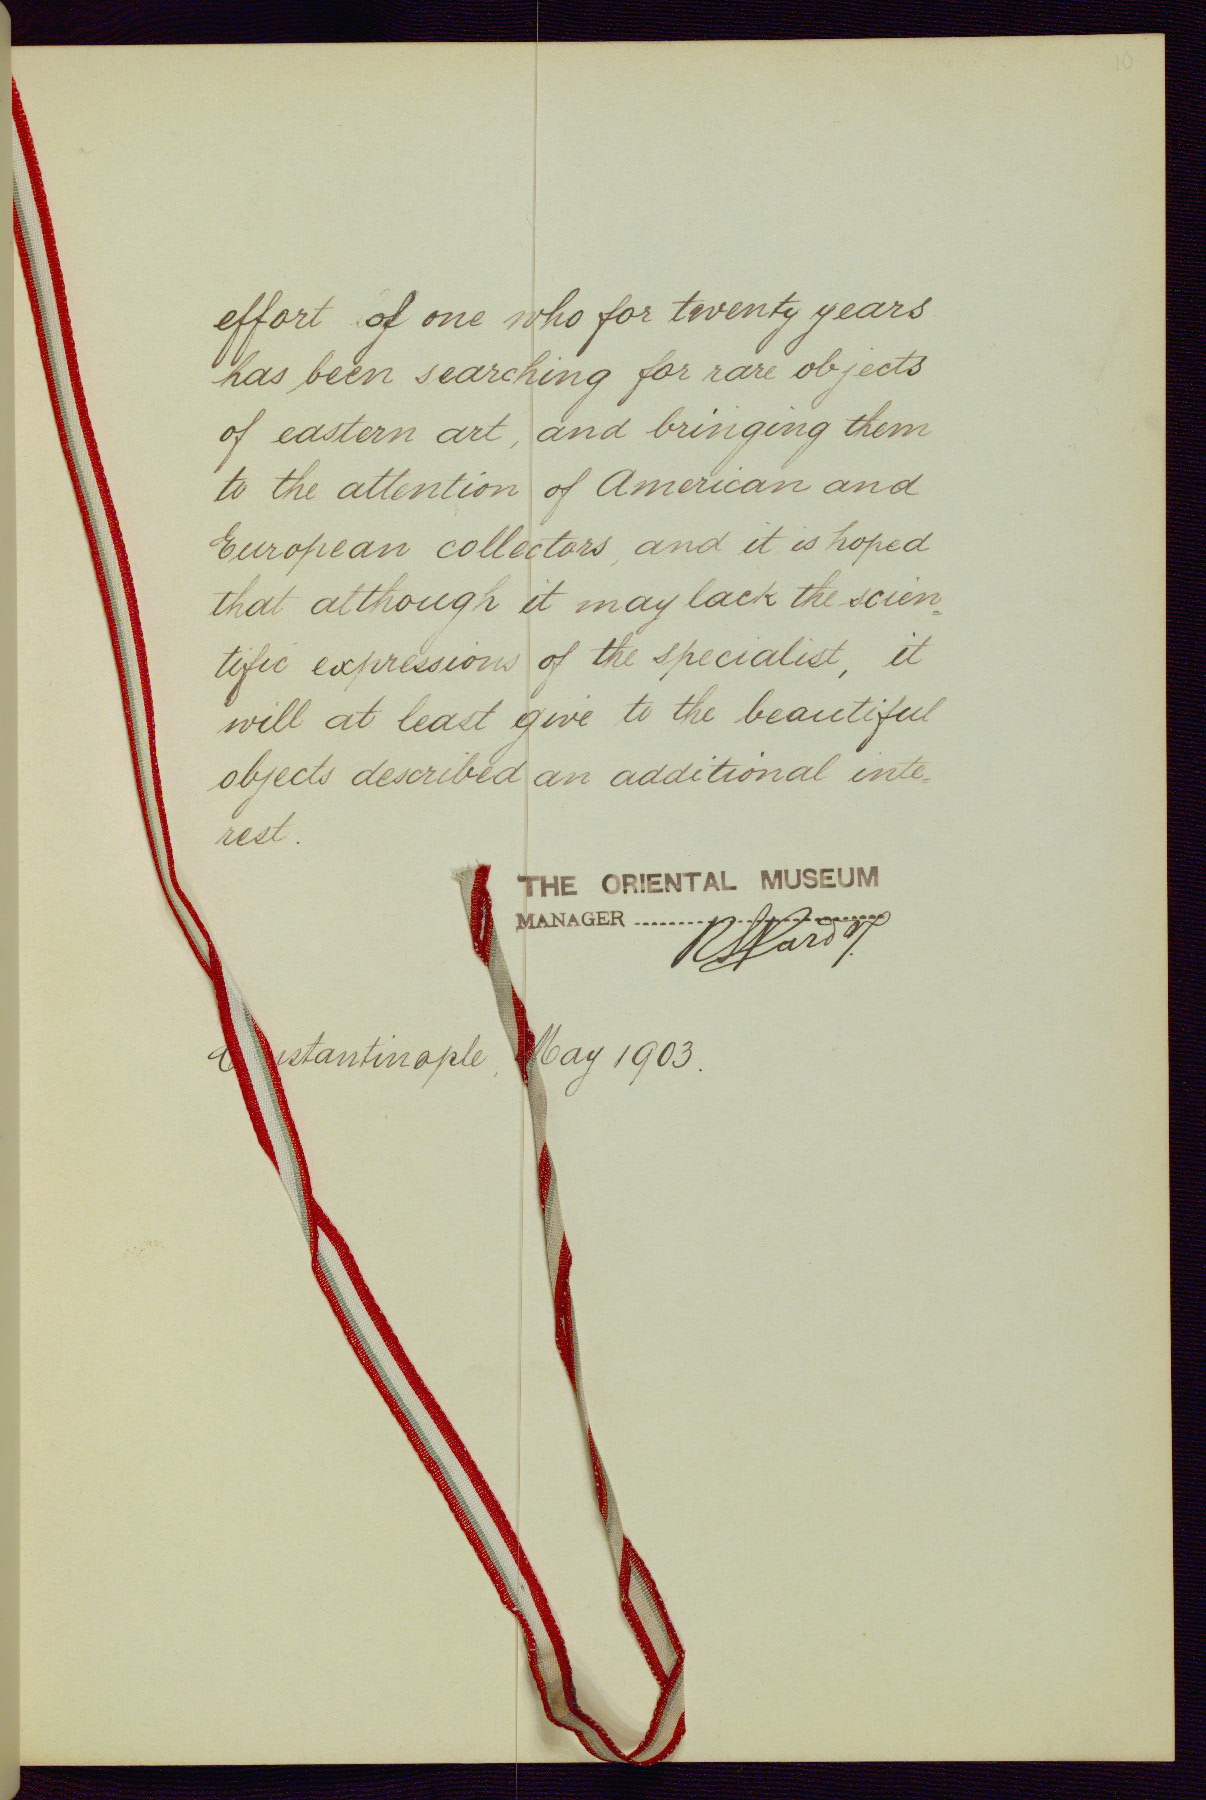 10
effort of one who for twenty years
has been searching for rare objects
of eastern art, and bringing them
to the attention of American and
European collectors, and it is hoped
that although it may lack the scien=
tific expressions of the specialist, it
will at least give to the beautiful
objects described an additional inte=
rest.
THE ORIENTAL MUSEUM
MANAGER
Constantinople, May 1903.